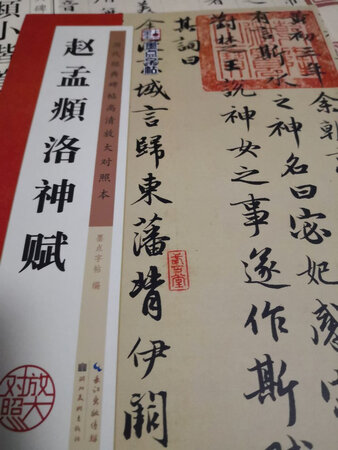 赵孟頫洛神赋
历代经典碑帖高清放大对照本
墨点字帖 编
长江出版传媒
湖北美术出版社
放大
对照
墨点字帖
黄初三年
余朝
有言斯水
之神名曰宓妃感宋
對楚王說神女之事遂作斯賦
其詞曰
余
域言歸東藩背伊闕
小楷